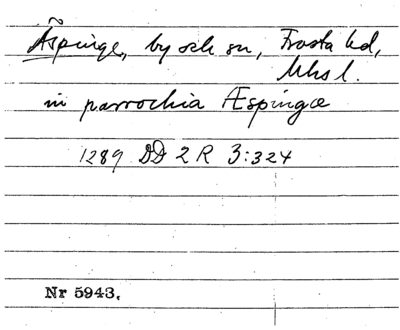 Äspinge, by och sn, Frosta hd,
Mhs l.
in parrochia Æspingæ
1289 DD 2 R 3:324
Nr 5943.